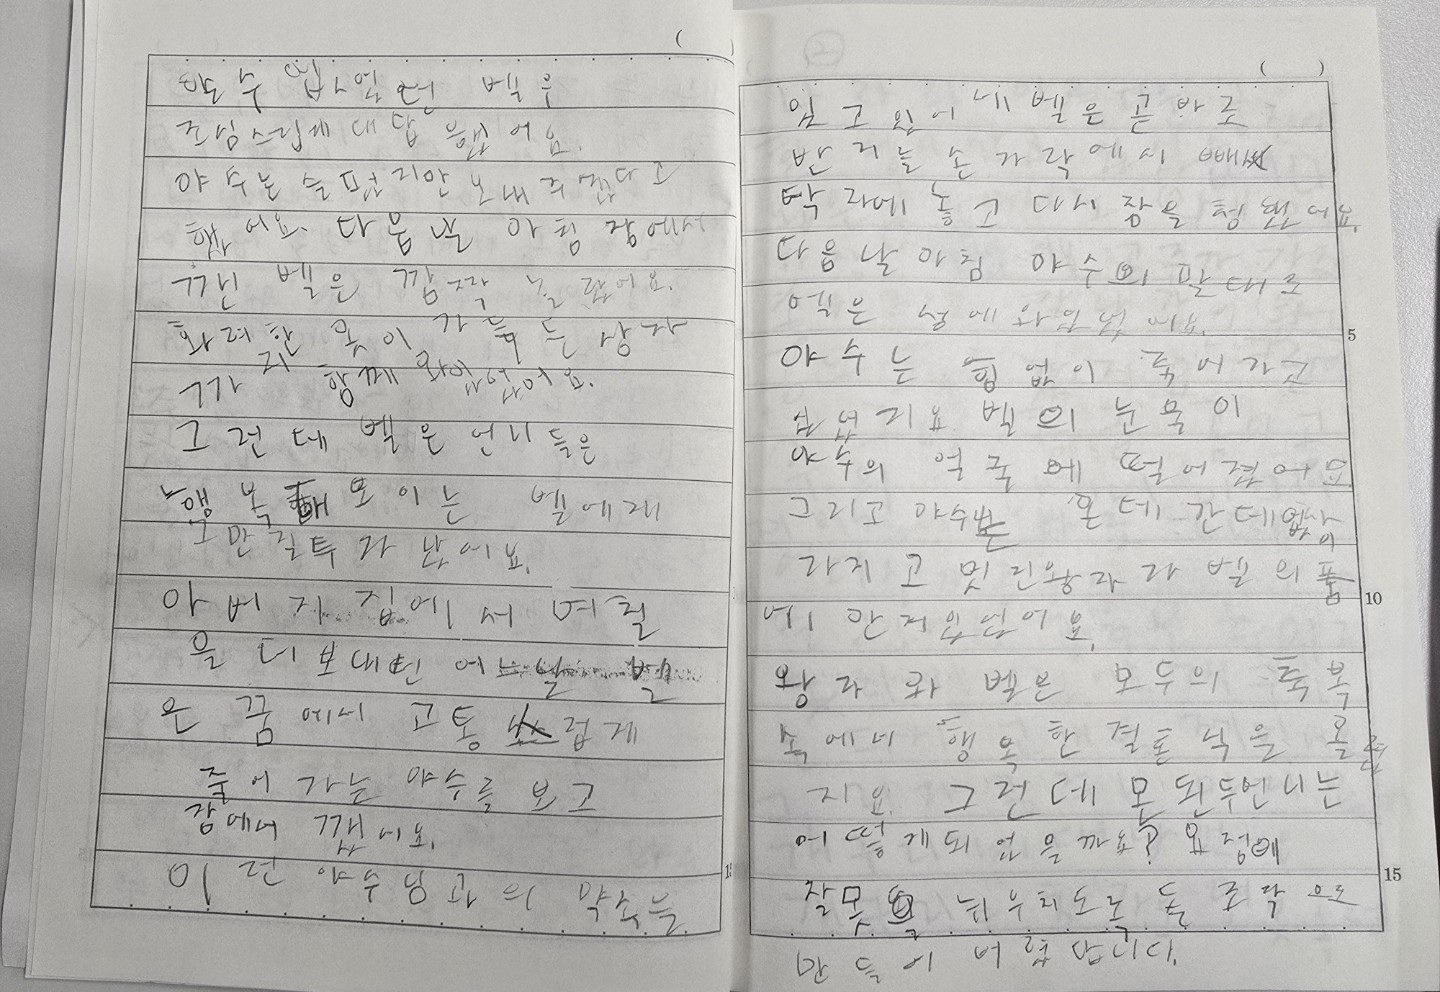 야수 없시없년 벨은
조심스럽게 대답 했어요.
야수는 슬펐지만 보내주겠다고
했어요. 다음 날 아침 잠에서
깬 벨은 깜짝 놀랐어요.
화려한 옷이 가득 든 상자
가 함께 와있었어요.
그런데 벨은 언니들은
행복해 보이는 벨에게
또 만 질투가 났어요.
아버지 집에서 여럴
을 더 보내던 어느날 벨
은 꿈에서 고통스럽게
줄어가는 야수를 보고
잠에서 깼어요.
이런 야수님고의 약속을
②
잊고 있어네 벨은 곧바로
반지를 손가락에서 빼
탁자에 놓고 다시 잠을 청했어요.
다음날 아침 야수의 말대로
벨은 성에 와있었어요.
야수는 힘없이 죽어가고
있었지요 벨의 눈물이
야수의 얼굴에 떨어졌어요
그리고 야수는 온데간데없이 사
라지고 멋진왕자가 벨의 품
에 안겨있었어요.
왕자와 벨은 모두의 축복
속에서 행복한 결혼식을 올렸
지요. 그런데 못된두언니는
어떻게되었을까요? 요정에
잘못을 뉘우치도록 돌로
만들어 버렸습니다.
5
10
15